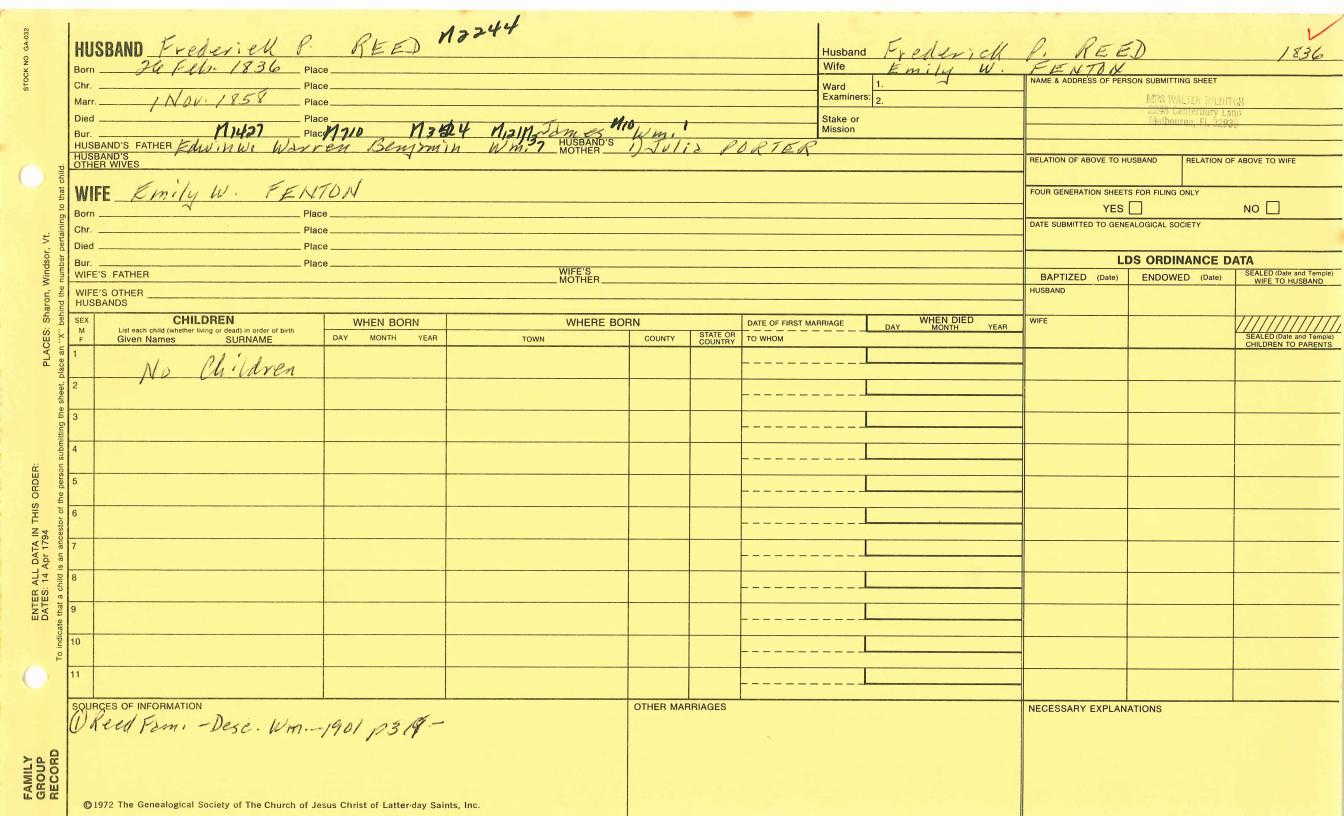 STOCK NO. GA-032
HUSBAND Frederick P. REED M2244
Born 26 Feb. 1836 Place
Chr. Place
Marr. 1 Nov. 1858 Place
Died Place
Bur. M1427 Place M710 James M10 Wm. 1
HUSBAND'S FATHER Warren Benjamin Wm. HUSBAND'S MOTHER 1) Julia PORTER
HUSBAND'S OTHER WIVES
WIFE Emily W. FENTON
Born Place
Chr. Place
Died Place
Bur. Place
WIFE'S FATHER WIFE'S MOTHER
WIFE'S OTHER HUSBANDS
Husband Frederick P. REED 1836
Wife Emily W. FENTON
Ward Examiners: 1.
2.
Stake or Mission
NAME & ADDRESS OF PERSON SUBMITTING SHEET
MRS WALTER
Canterbury Lane
Melbourne, FL 32935
RELATION OF ABOVE TO HUSBAND RELATION OF ABOVE TO WIFE
FOUR GENERATION SHEETS FOR FILING ONLY
YES NO
DATE SUBMITTED TO GENEALOGICAL SOCIETY
LDS ORDINANCE DATA
BAPTIZED (Date) ENDOWED (Date) SEALED (Date and Temple) WIFE TO HUSBAND
HUSBAND
WIFE
SEALED (Date and Temple) CHILDREN TO PARENTS
SEX M F
CHILDREN
List each child (whether living or dead) in order of birth
Given Names SURNAME
WHEN BORN
DAY MONTH YEAR
WHERE BORN
TOWN COUNTY STATE OR COUNTRY
DATE OF FIRST MARRIAGE
TO WHOM
WHEN DIED
DAY MONTH YEAR
1
No Children
2
3
4
5
6
7
8
9
10
11
SOURCES OF INFORMATION
① Reed Fam. - Desc. Wm. - 1901
OTHER MARRIAGES
NECESSARY EXPLANATIONS
©1972 The Genealogical Society of The Church of Jesus Christ of Latter-day Saints, Inc.
PLACES: Sharon, Windsor, Vt.
To indicate that a child is an ancestor of the person submitting the sheet, place an "X" behind the number pertaining to that child.
ENTER ALL DATA IN THIS ORDER:
DATES: 14 Apr 1794
FAMILY GROUP RECORD